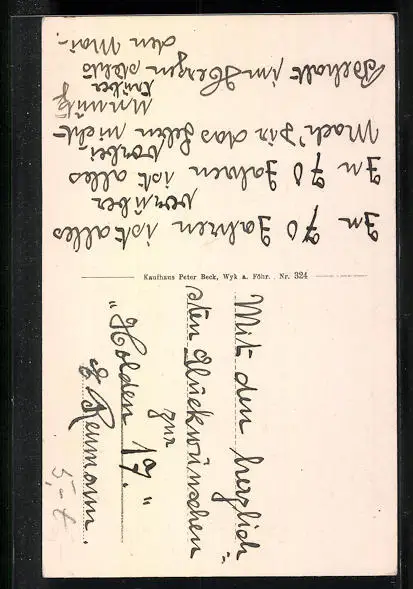 In 70 Jahren ist alles
vorüber
In 70 Jahren ist alles
vorbei
Mach' Dir das Leben nicht
unnütz
trübe
Behalt im Herzen stets
den Mai.
Kaufhaus Peter Beck, Wyk a. Föhr. Nr. 324
Mit den herzlich-
sten Glückwünschen
zur
"Holden 17."
E. Reumann.
5,-